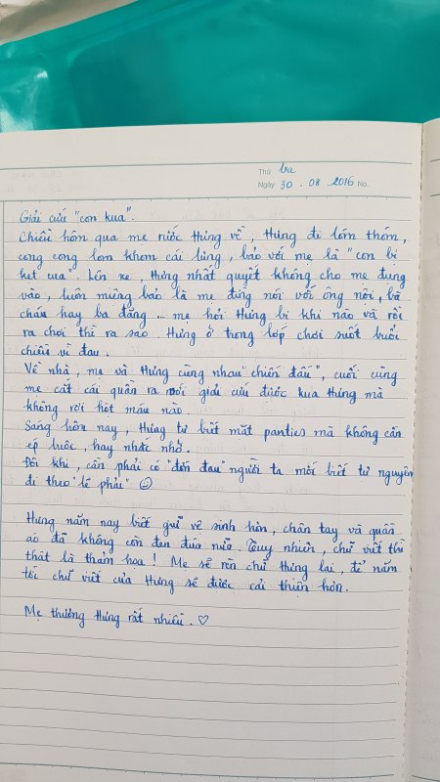 Thứ ba
Ngày 30 . 08 . 2016 No.
Giải cứu "con kua".
Chiều hôm qua mẹ rước Hưng về, Hưng đi lóm thóm,
cong cong lom khom cái lưng, bảo với mẹ là "con bị
kẹt cua". Lên xe, Hưng nhất quyết không cho mẹ đụng
vào, luôn miệng bảo là mẹ đừng nói với ông nội, bà
cháu hay ba đăng - mẹ hỏi Hưng bị khi nào và rồi
ra chơi thì ra sao. Hưng ở trong lớp chơi suốt buổi
chiều vì đau.
Về nhà, mẹ và Hưng cùng nhau "chiến đấu", cuối cùng
mẹ cắt cái quần ra mới giải cứu được kua Hưng mà
không rơi hột máu nào.
Sáng hôm nay, Hưng tự biết mặt panties mà không cần
ép buộc, hay nhắc nhở.
Đôi khi, cần phải có "đớn đau" người ta mới biết tự nguyện
đi theo "lẽ phải" ☺
Hưng năm nay biết giữ vệ sinh hơn, chân tay và quần
áo đã không còn đen đúa nữa. Tuy nhiên, chữ viết thì
thật là thảm họa! Mẹ sẽ rèn chữ Hưng lại, để năm
tới chữ viết của Hưng sẽ được cải thiện hơn.
Mẹ thương Hưng rất nhiều. ♡